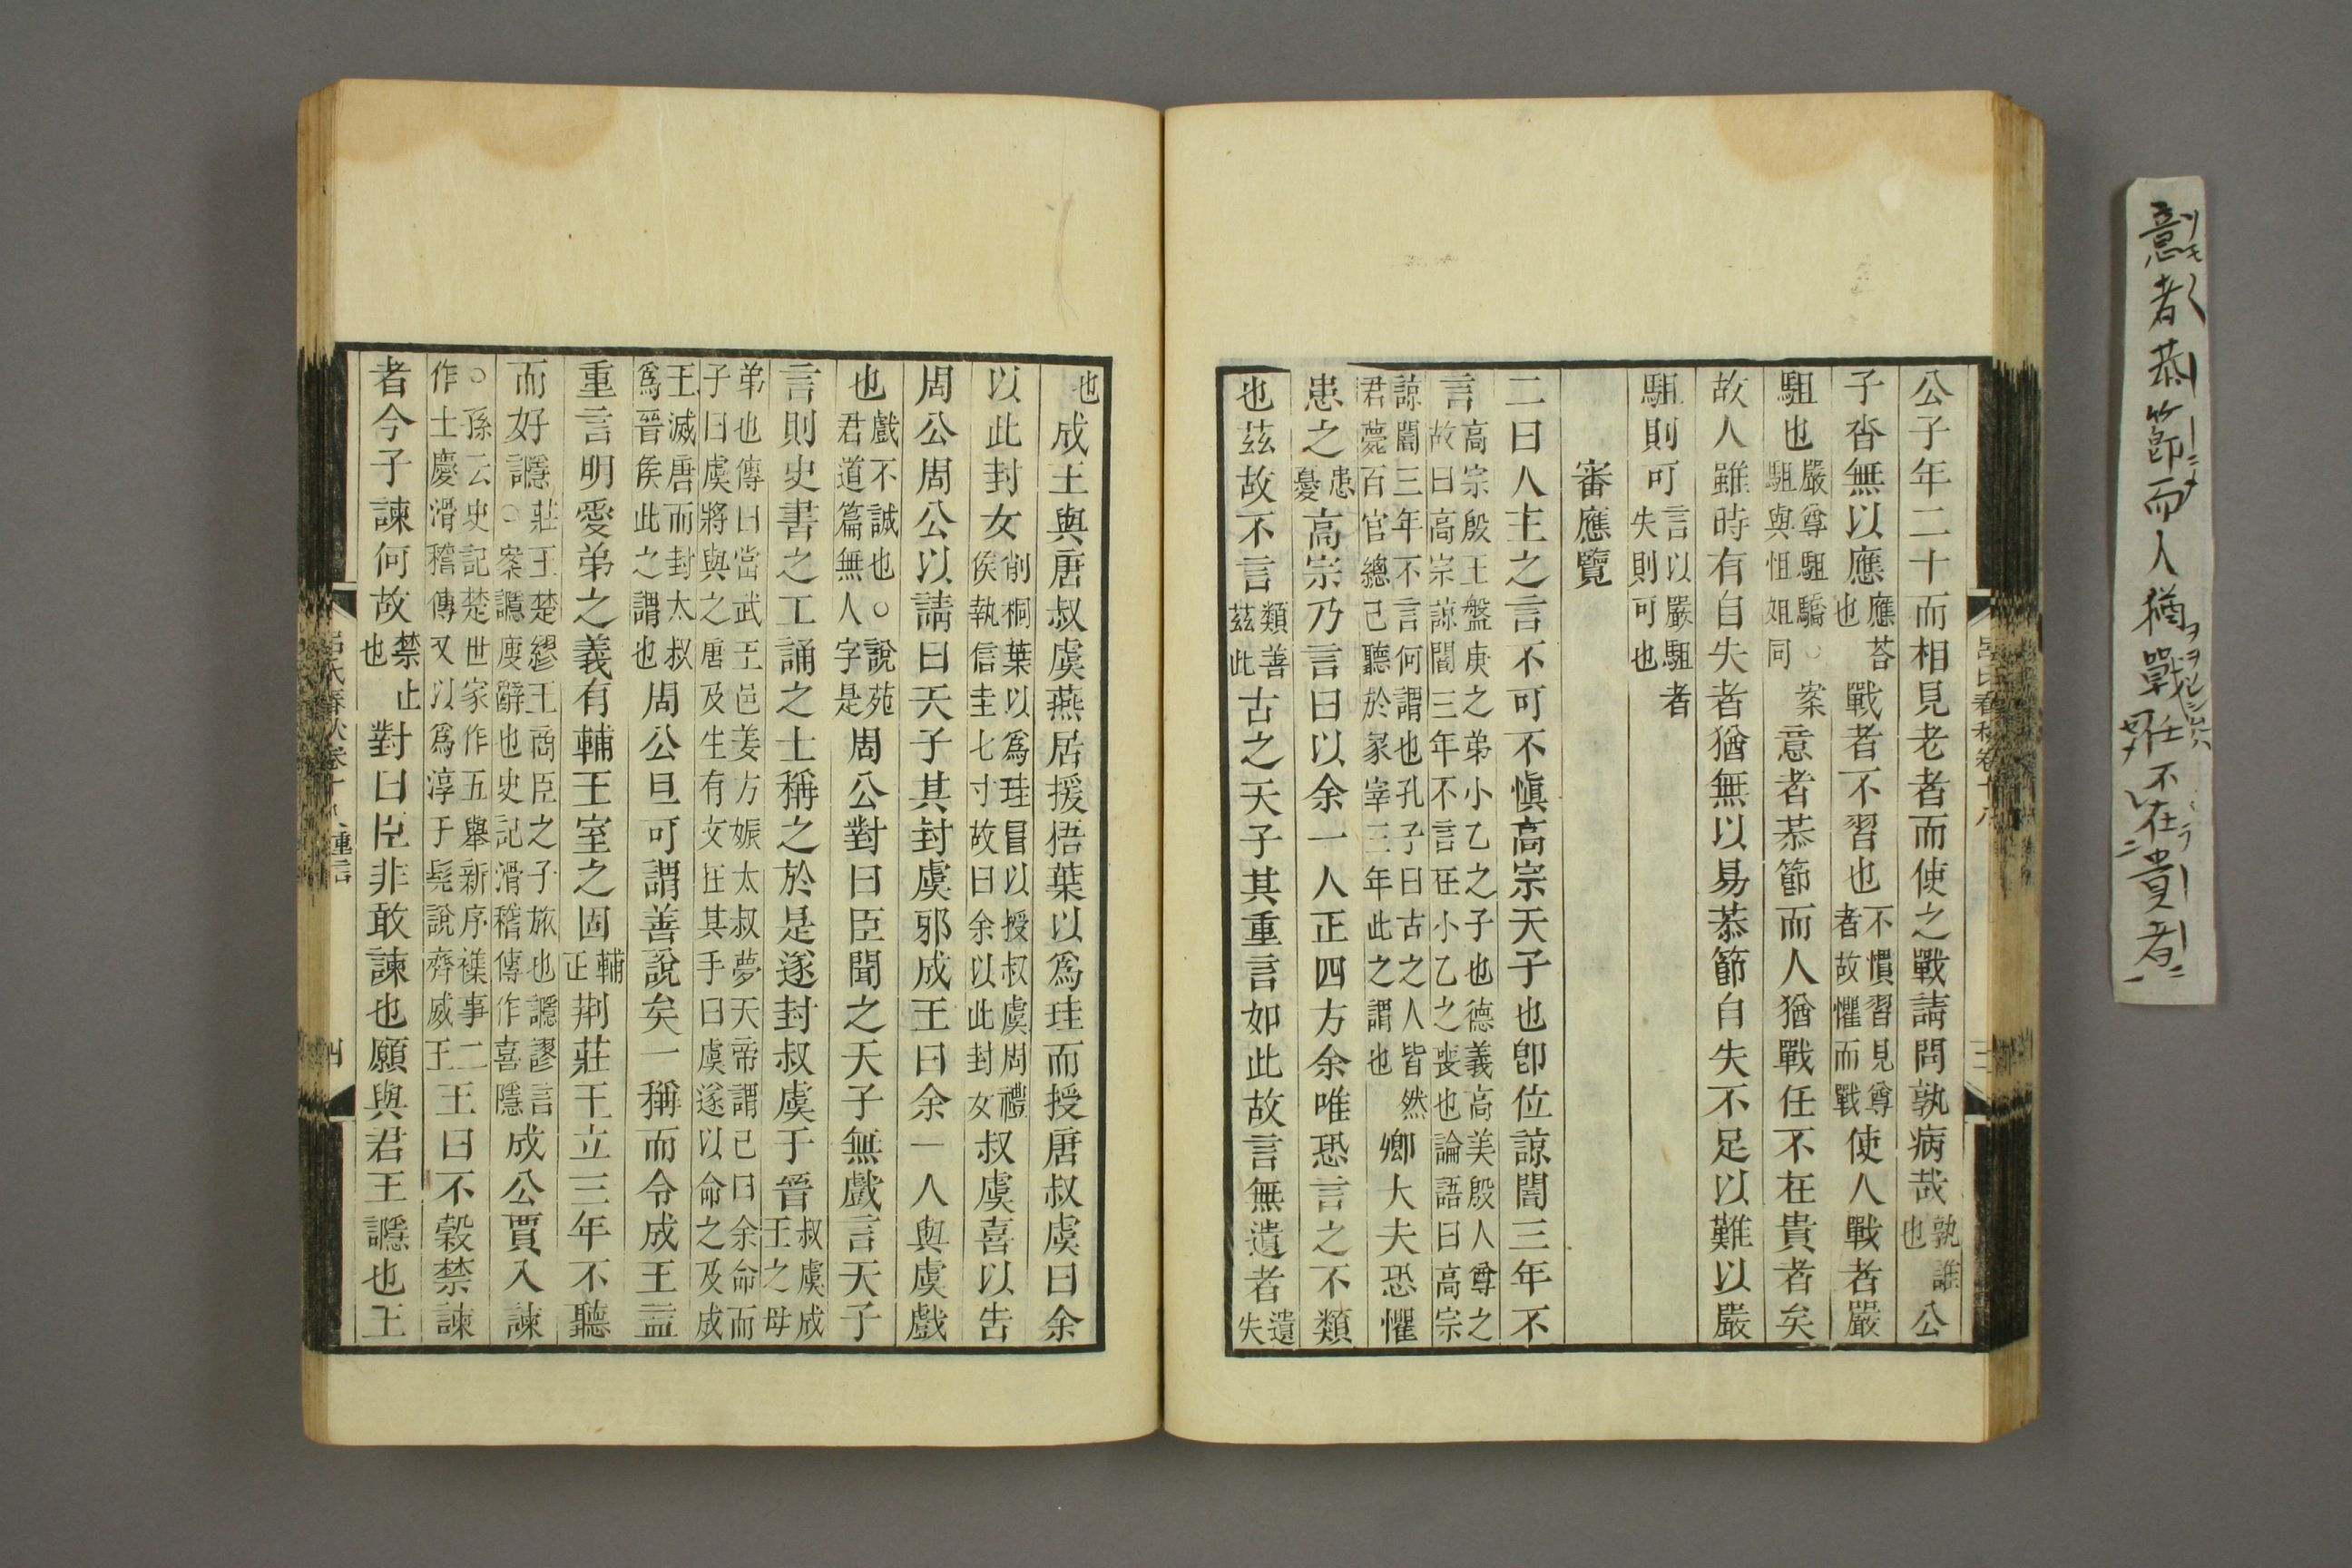 公子年二十而相見老者而使之戰請問孰病哉孰誰也公
子沓無以應應荅也戰者不習也不慣習見尊者故懼而戰使人戰者嚴
駔也嚴尊駔驕○案駔與怚姐同意者恭節而人猶戰任不在貴者矣
故人雖時有自失者猶無以易恭節自失不足以難以嚴
駔則可言以嚴駔者失則可也
審應覽
二曰人主之言不可不愼高宗天子也卽位諒闇三年不
言高宗殷王盤庚之弟小乙之子也德義高美殷人尊之故曰高宗諒闇三年不言在小乙之喪也論語曰高宗
諒闇三年不言何謂也孔子曰古之人皆然君薨百官總己聽於冢宰三年此之謂也卿大夫恐懼
患之患憂高宗乃言曰以余一人正四方余唯恐言之不類
也茲故不言類善茲此古之天子其重言如此故言無遺者遺失
也成王與唐叔虞燕居援梧葉以爲珪而授唐叔虞曰余
以此封女削桐葉以爲珪冒以授叔虞周禮侯執信圭七寸故曰余以此封女叔虞喜以告
周公周公以請曰天子其封虞邪成王曰余一人與虞戲
也戲不誠也○說苑君道篇無人字是周公對曰臣聞之天子無戲言天子
言則史書之工誦之士稱之於是遂封叔虞于晉叔虞成王之母
弟也傳曰當武王邑姜方娠太叔夢天帝謂已曰余命而子曰虞將與之唐及生有文在其手曰虞遂以命之及成
王滅唐而封太叔爲晉侯此之謂也周公旦可謂善說矣一稱而令成王益
重言明愛弟之義有輔王室之固輔正荆莊王立三年不聽
而好讔莊王楚繆王商臣之子旅也讔謬言○案讔廋辭也史記滑稽傳作喜隱成公賈入諫
○孫云史記楚世家作五舉新序襍事二作士慶滑稽傳又以爲淳于髡說齊威王王曰不穀禁諫
者今子諫何故禁止也對曰臣非敢諫也願與君王讔也王
呂氏春秋卷十八
三
呂氏春秋卷十八
重言
四
意者恭節而人猶戰任不在貴者